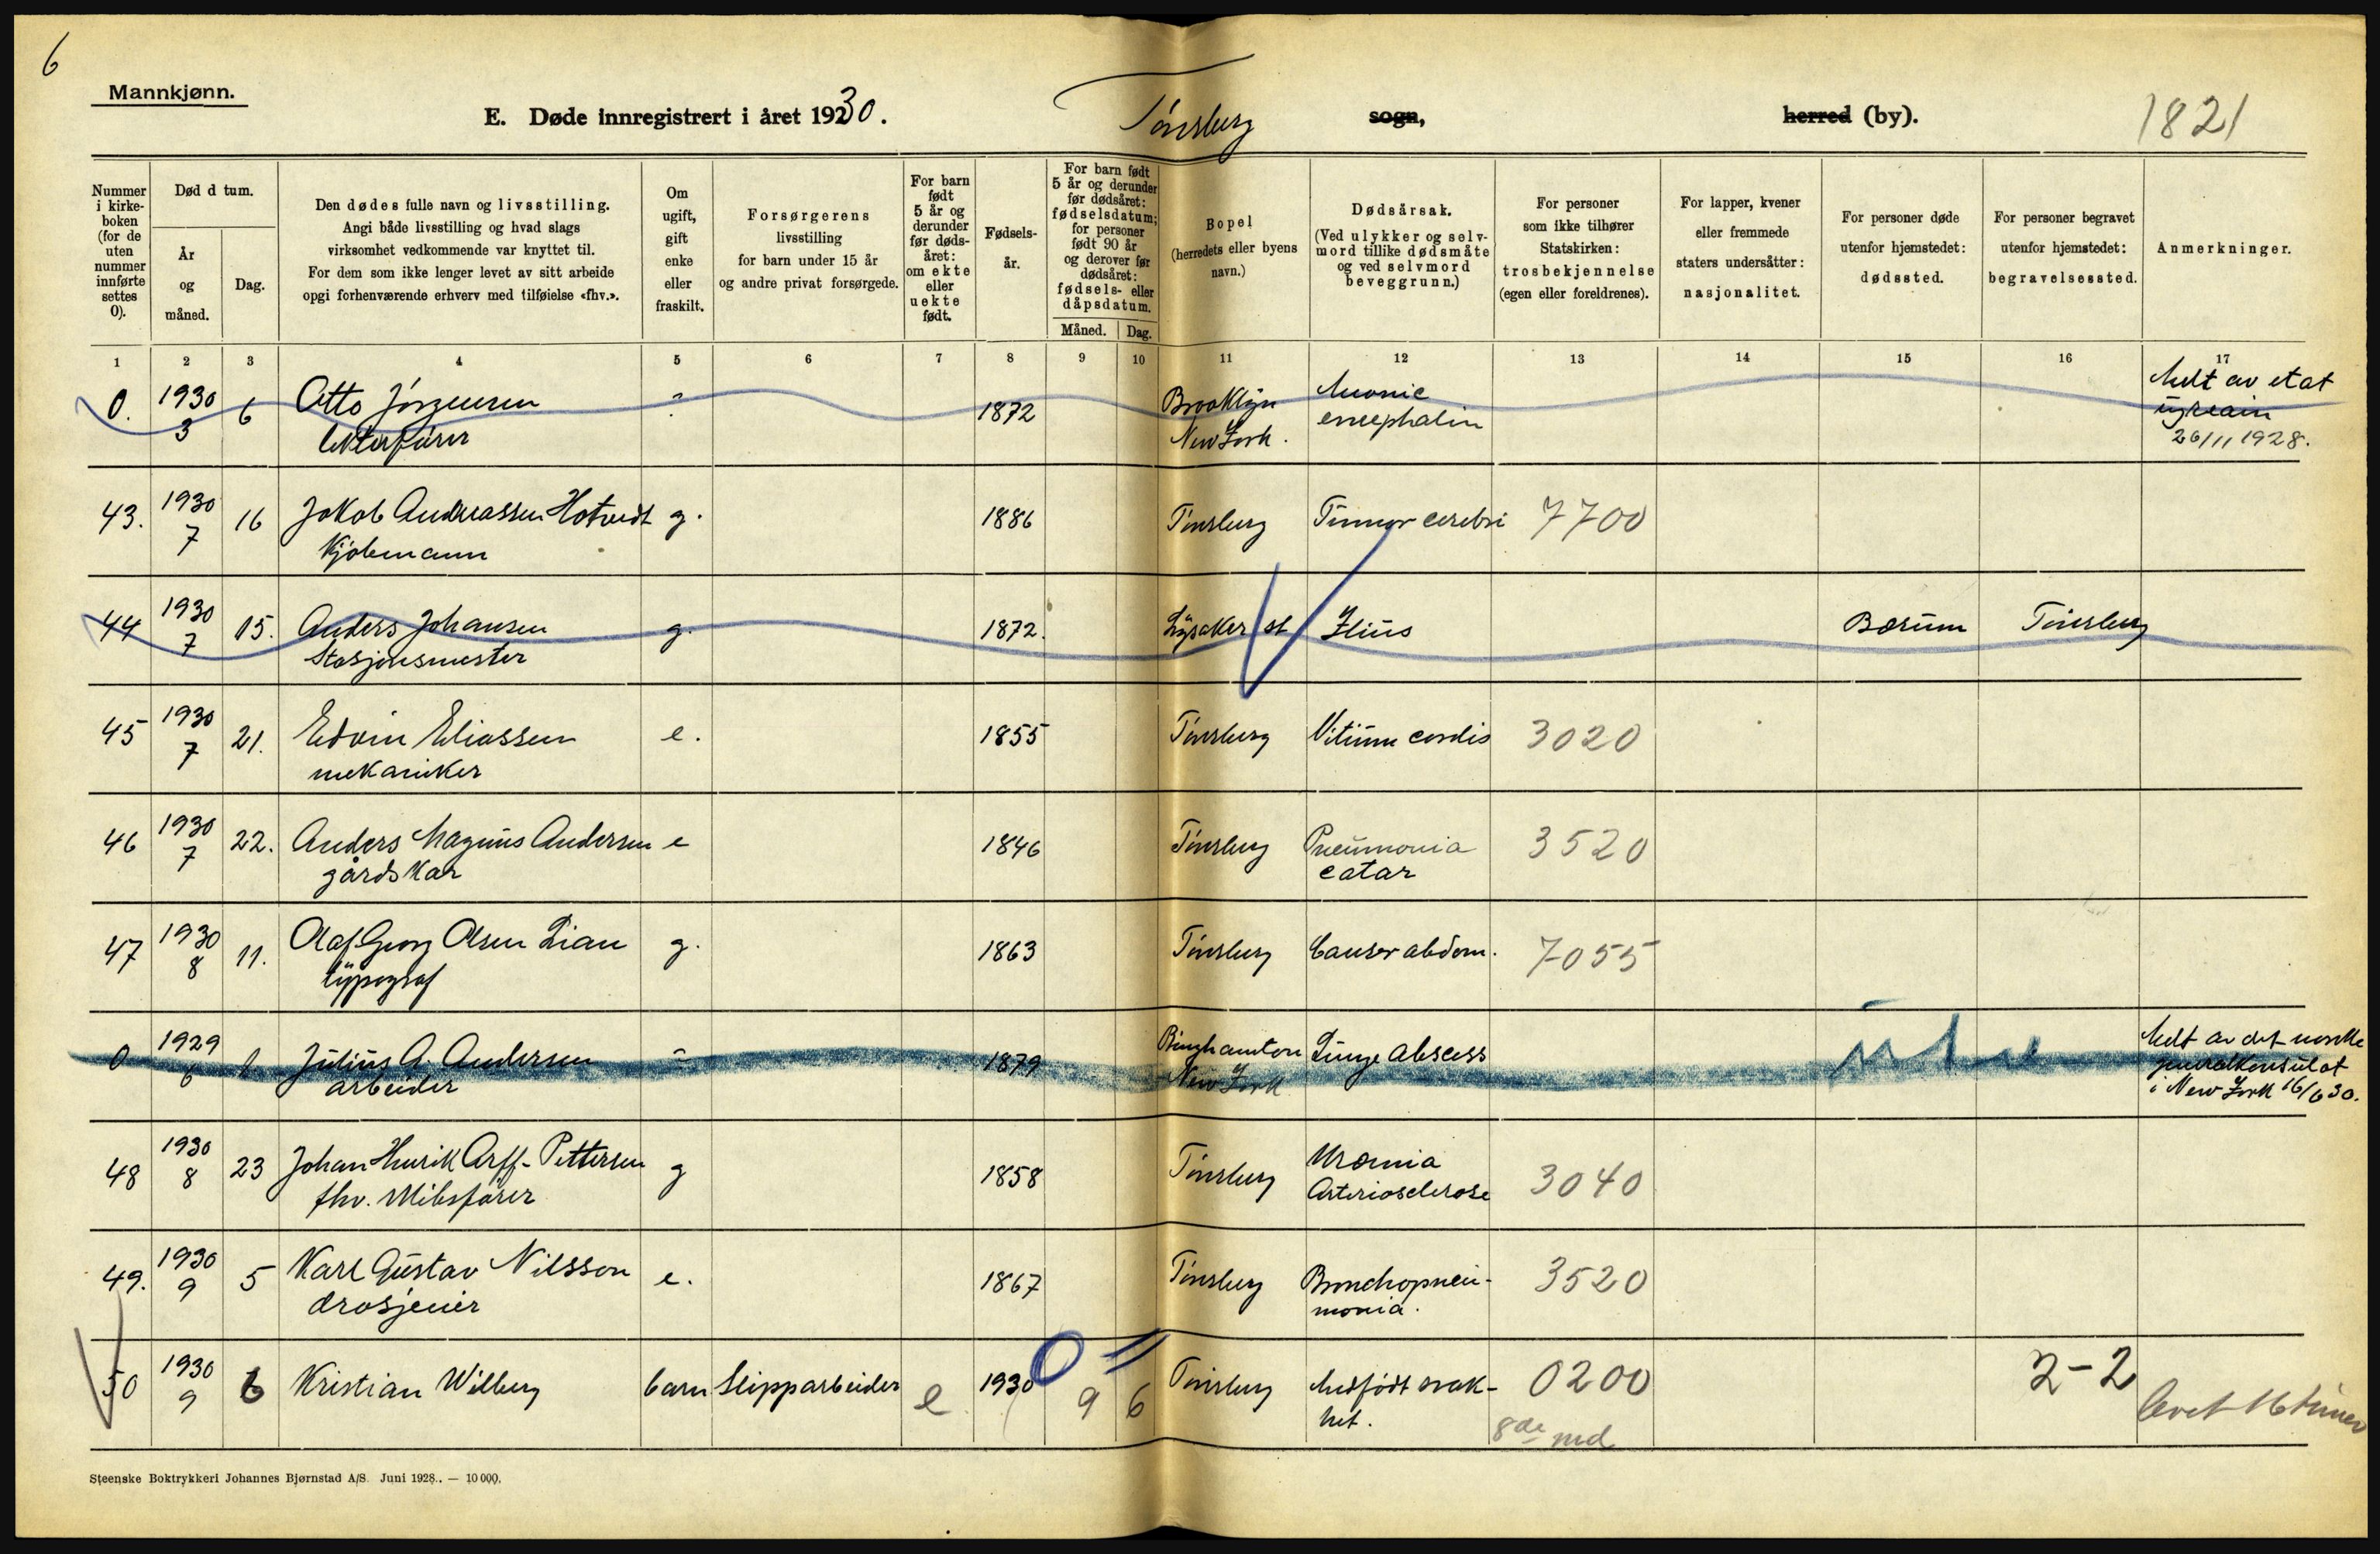 6
Mannkjønn.
E. Døde innregistrert i året 1930.
Tønsberg
sogn,
herred (by).
1821
Nummer i kirke-boken (for de uten nummer innførte settes 0).
Død d tum.
År og måned.
Dag.
Den dødes fulle navn og livsstilling.
Angi både livsstilling og hvad slags
virksomhet vedkommende var knyttet til.
For dem som ikke lenger levet av sitt arbeide
opgi forhenværende erhverv med tilføielse «fhv.».
Om ugift, gift enke eller fraskilt.
Forsørgerens
livsstilling
for barn under 15 år
og andre privat forsørgede.
For barn født 5 år og derunder før døds-året: om ekte eller uekte født.
Fødsels-år.
For barn født 5 år og derunder før dødsåret: fødselsdatum; for personer født 90 år og derover før dødsåret: fødsels- eller dåpsdatum.
Måned. Dag.
Bopel
(herredets eller byens
navn.)
Dødsårsak.
(Ved ulykker og selv-
mord tillike dødsmåte
og ved selvmord
beveggrunn.)
For personer
som ikke tilhører
Statskirken:
trosbekjennelse
(egen eller foreldrenes).
For lapper, kvener
eller fremmede
staters undersåtter:
nasjonalitet.
For personer døde
utenfor hjemstedet:
dødssted.
For personer begravet
utenfor hjemstedet:
begravelsessted.
Anmerkninger.
1 2 3 4 5 6 7 8 9 10 11 12 13 14 15 16 17
0. 1930 3 6 Otto Jörgensen ? 1872 Brooklyn New York. encephalin Melt av etat
26/11 1928.
43. 1930 7 16 Jakob Andreassen Hotvedt g. 1886 Tönsberg Tumor cerebri 7700
Kjöbmann
44 1930 7 15. Anders Johansen g. 1872. Lysaker st Ilius Bærum Tönsberg
Stasjonsmester
45 1930 7 21. Edvin Eliassen e. 1855 Tönsberg Vitium cordis 3020
mekaniker
46 1930 7 22. Anders Magnus Andersen e 1846 Tönsberg Pneumonia catar 3520
gårdskar
47 1930 8 11. Olaf Georg Olsen Lian g. 1863 Tönsberg Canser abdom. 7055
typograf
0 1929 6 Julius A. Andersen - 1879 Binghamton New York Lunge abscess Melt av det norske
arbeider generalkonsulat
i New York 16/6 30.
48 1930 8 23 Johan Henrik Arff-Pettersen g 1858 Tönsberg Uræmia Arteriosclerose 3040
fhv. skibsförer
49. 1930 9 5 Karl Gustav Nilsson e. 1867 Tönsberg Bronchopneu-monia. 3520
drosjeeier
50 1930 9 6 Kristian Wilberg barn Slipparbeider e 1930 0 " 9 6 Tönsberg Medfödt svak-het. 0200 2-2
8de md
levet 16 timer
Steenske Boktrykkeri Johannes Bjørnstad A/S. Juni 1928. — 10 000.